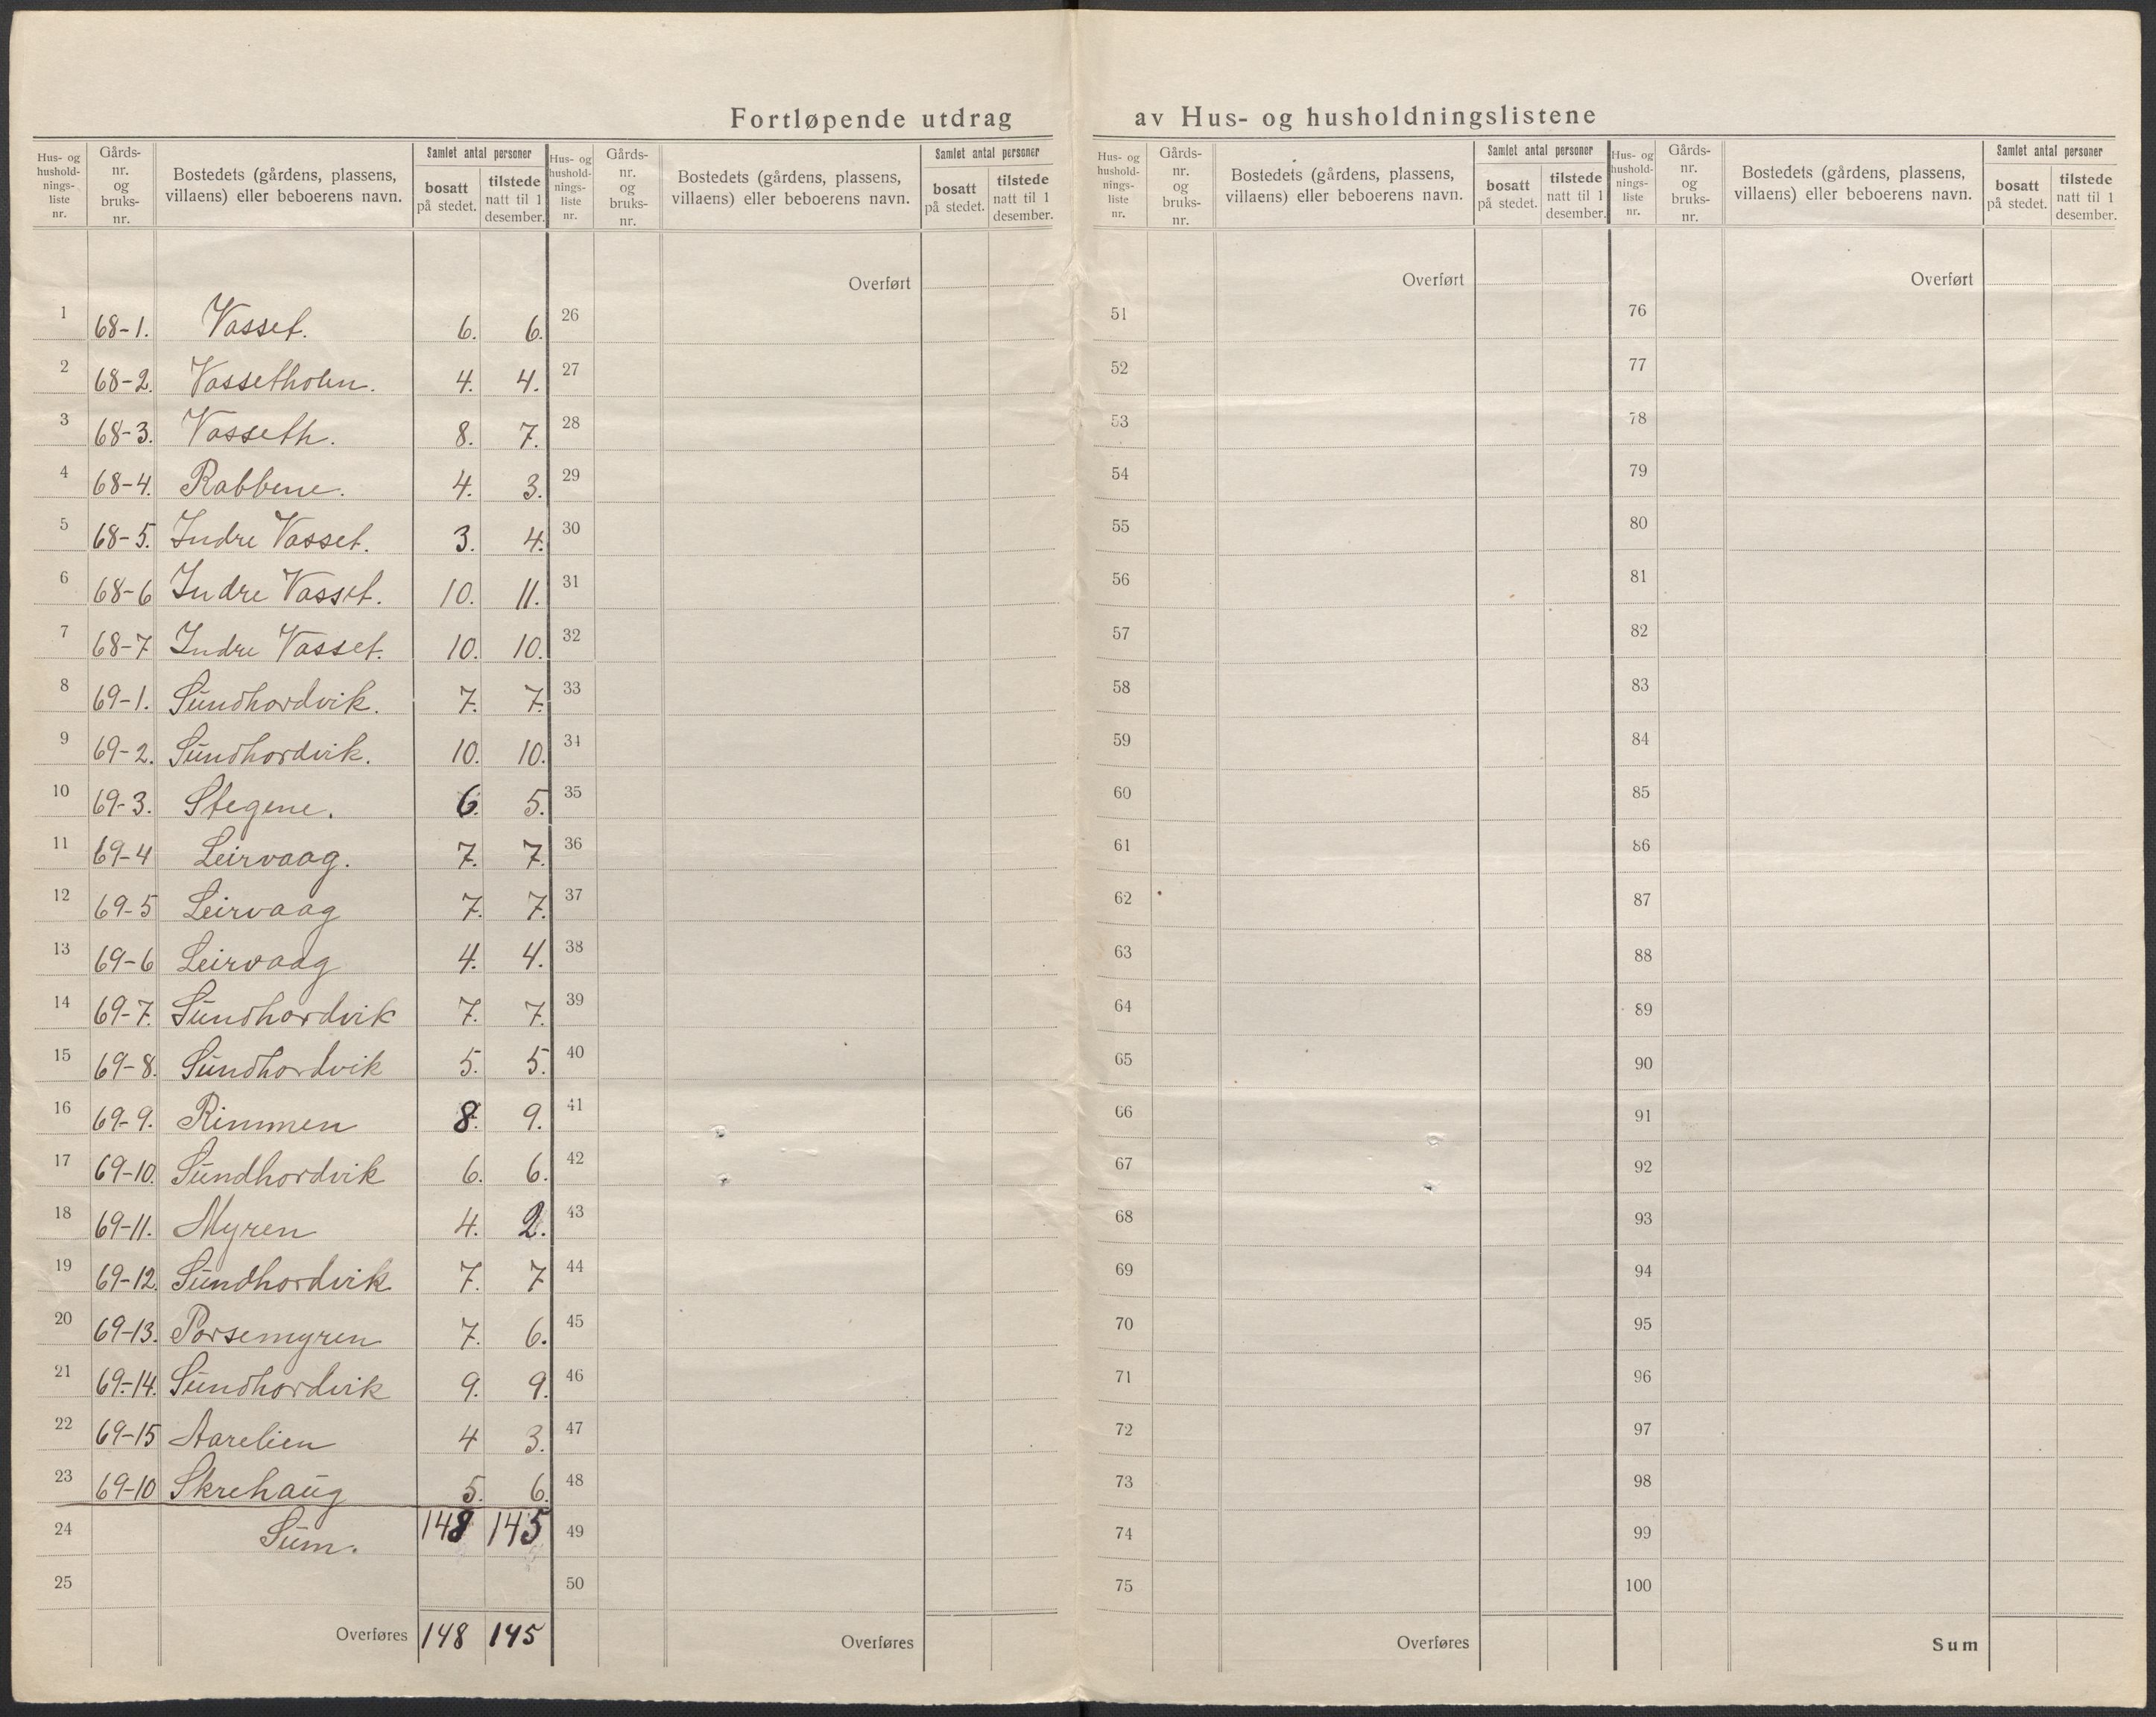 Fortløpende utdrag av Hus- og husholdningslistene
Hus- og hushold-nings-liste nr. Gårds-nr. og bruks-nr. Bostedets (gårdens, plassens, villaens) eller beboerens navn. Samlet antal personer bosatt på stedet. tilstede natt til 1 desember.
1 68-1. Vasset. 6. 6.
2 68-2. Vassetholm. 4. 4.
3 68-3. Vasseth. 8. 7.
4 68-4. Rabbene. 4. 3.
5 68-5. Indre Vasset. 3. 4.
6 68-6 Indre Vasset. 10. 11.
7 68-7 Indre Vasset. 10. 10.
8 69-1. Sundhordvik. 7. 7.
9 69-2. Sundhordvik. 10. 10.
10 69-3. Stegene. 6. 5.
11 69-4 Leirvaag. 7. 7.
12 69-5 Leirvaag 7. 7.
13 69-6 Leirvaag 4. 4.
14 69-7. Sundhordvik 7. 7.
15 69-8. Sundhordvik 5. 5.
16 69-9. Rimmen 8. 9.
17 69-10. Sundhordvik 6. 6.
18 69-11. Myren 4. 2.
19 69-12. Sundhordvik 7. 7
20 69-13. Porsemyren 7. 6.
21 69-14. Sundhordvik 9. 9.
22 69-15 Aarelien 4 3.
23 69-10 Skrehaug 5. 6.
24 Sum. 148 145
25
Overføres 148 145
Hus- og hushold-nings-liste nr. Gårds-nr. og bruks-nr. Bostedets (gårdens, plassens, villaens) eller beboerens navn. Samlet antal personer bosatt på stedet. tilstede natt til 1 desember.
Overført
26
27
28
29
30
31
32
33
34
35
36
37
38
39
40
41
42
43
44
45
46
47
48
49
50
Overføres
Hus- og hushold-nings-liste nr. Gårds-nr. og bruks-nr. Bostedets (gårdens, plassens, villaens) eller beboerens navn. Samlet antal personer bosatt på stedet. tilstede natt til 1 desember.
Overført
51
52
53
54
55
56
57
58
59
60
61
62
63
64
65
66
67
68
69
70
71
72
73
74
75
Overføres
Hus- og hushold-nings-liste nr. Gårds-nr. og bruks-nr. Bostedets (gårdens, plassens, villaens) eller beboerens navn. Samlet antal personer bosatt på stedet. tilstede natt til 1 desember.
Overført
76
77
78
79
80
81
82
83
84
85
86
87
88
89
90
91
92
93
94
95
96
97
98
99
100
Sum